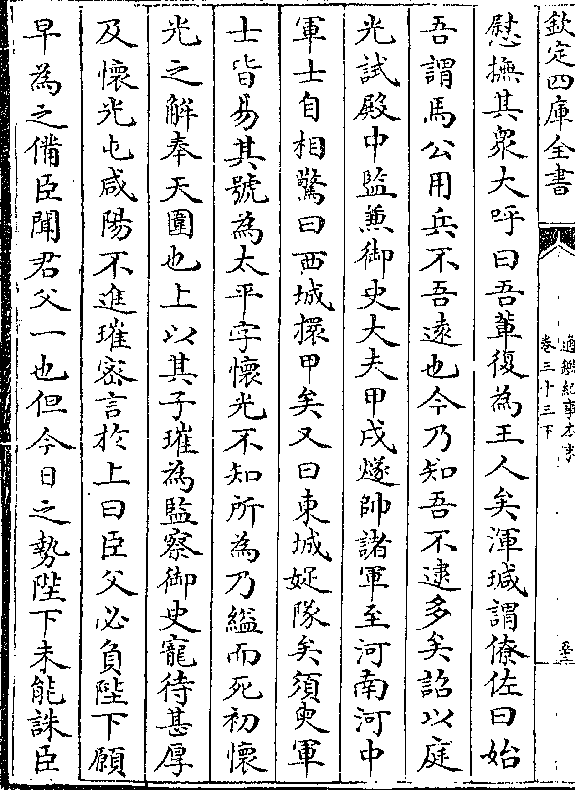 欽定四庫全書
通鑑紀事本末
卷三十三下
慰撫其衆大呼曰吾輩復為王人矣渾瑊謂僚佐曰始
吾謂馬公用兵不吾遠也今乃知吾不逮多矣詔以庭
光試殿中監兼御史大夫甲戌燧帥諸軍至河南河中
軍士自相驚曰西城擐甲矣又曰東城娖隊矣須臾軍
士皆易其號為太平字懷光不知所為乃縊而死初懷
光之解奉天圍也上以其子璀為監察御史寵待甚厚
及懷光屯咸陽不進璀密言於上曰臣父必負陛下願
早為之備臣聞君父一也但今日之勢陛下未能誅臣